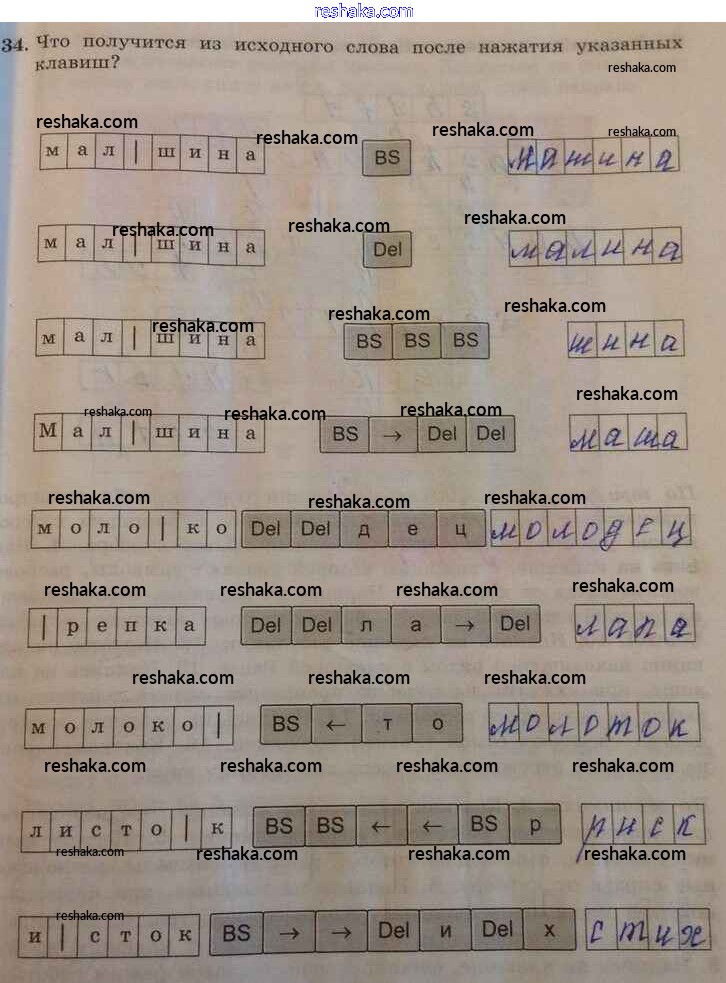 reshaka.com
34. Что получится из исходного слова после нажатия указанных
клавиш?
reshaka.com
reshaka.com
reshaka.com reshaka.com reshaka.com
м а л | ш и н а BS машина
reshaka.com reshaka.com reshaka.com
м а л | ш и н а Del малина
reshaka.com reshaka.com reshaka.com
м а л | ш и н а BS BS BS шина
reshaka.com
reshaka.com reshaka.com reshaka.com
М а л | ш и н а BS → Del Del маша
reshaka.com reshaka.com reshaka.com
м о л о | к о Del Del д е ц молодец
reshaka.com reshaka.com reshaka.com reshaka.com
| р е п к а Del Del л а → Del лапа
reshaka.com reshaka.com reshaka.com
м о л о к о | BS ← т о молоток
reshaka.com reshaka.com reshaka.com reshaka.com
л и с т о | к BS BS ← ← BS р риск
reshaka.com reshaka.com reshaka.com reshaka.com
reshaka.com
и | с т о к BS → → Del и Del х стих